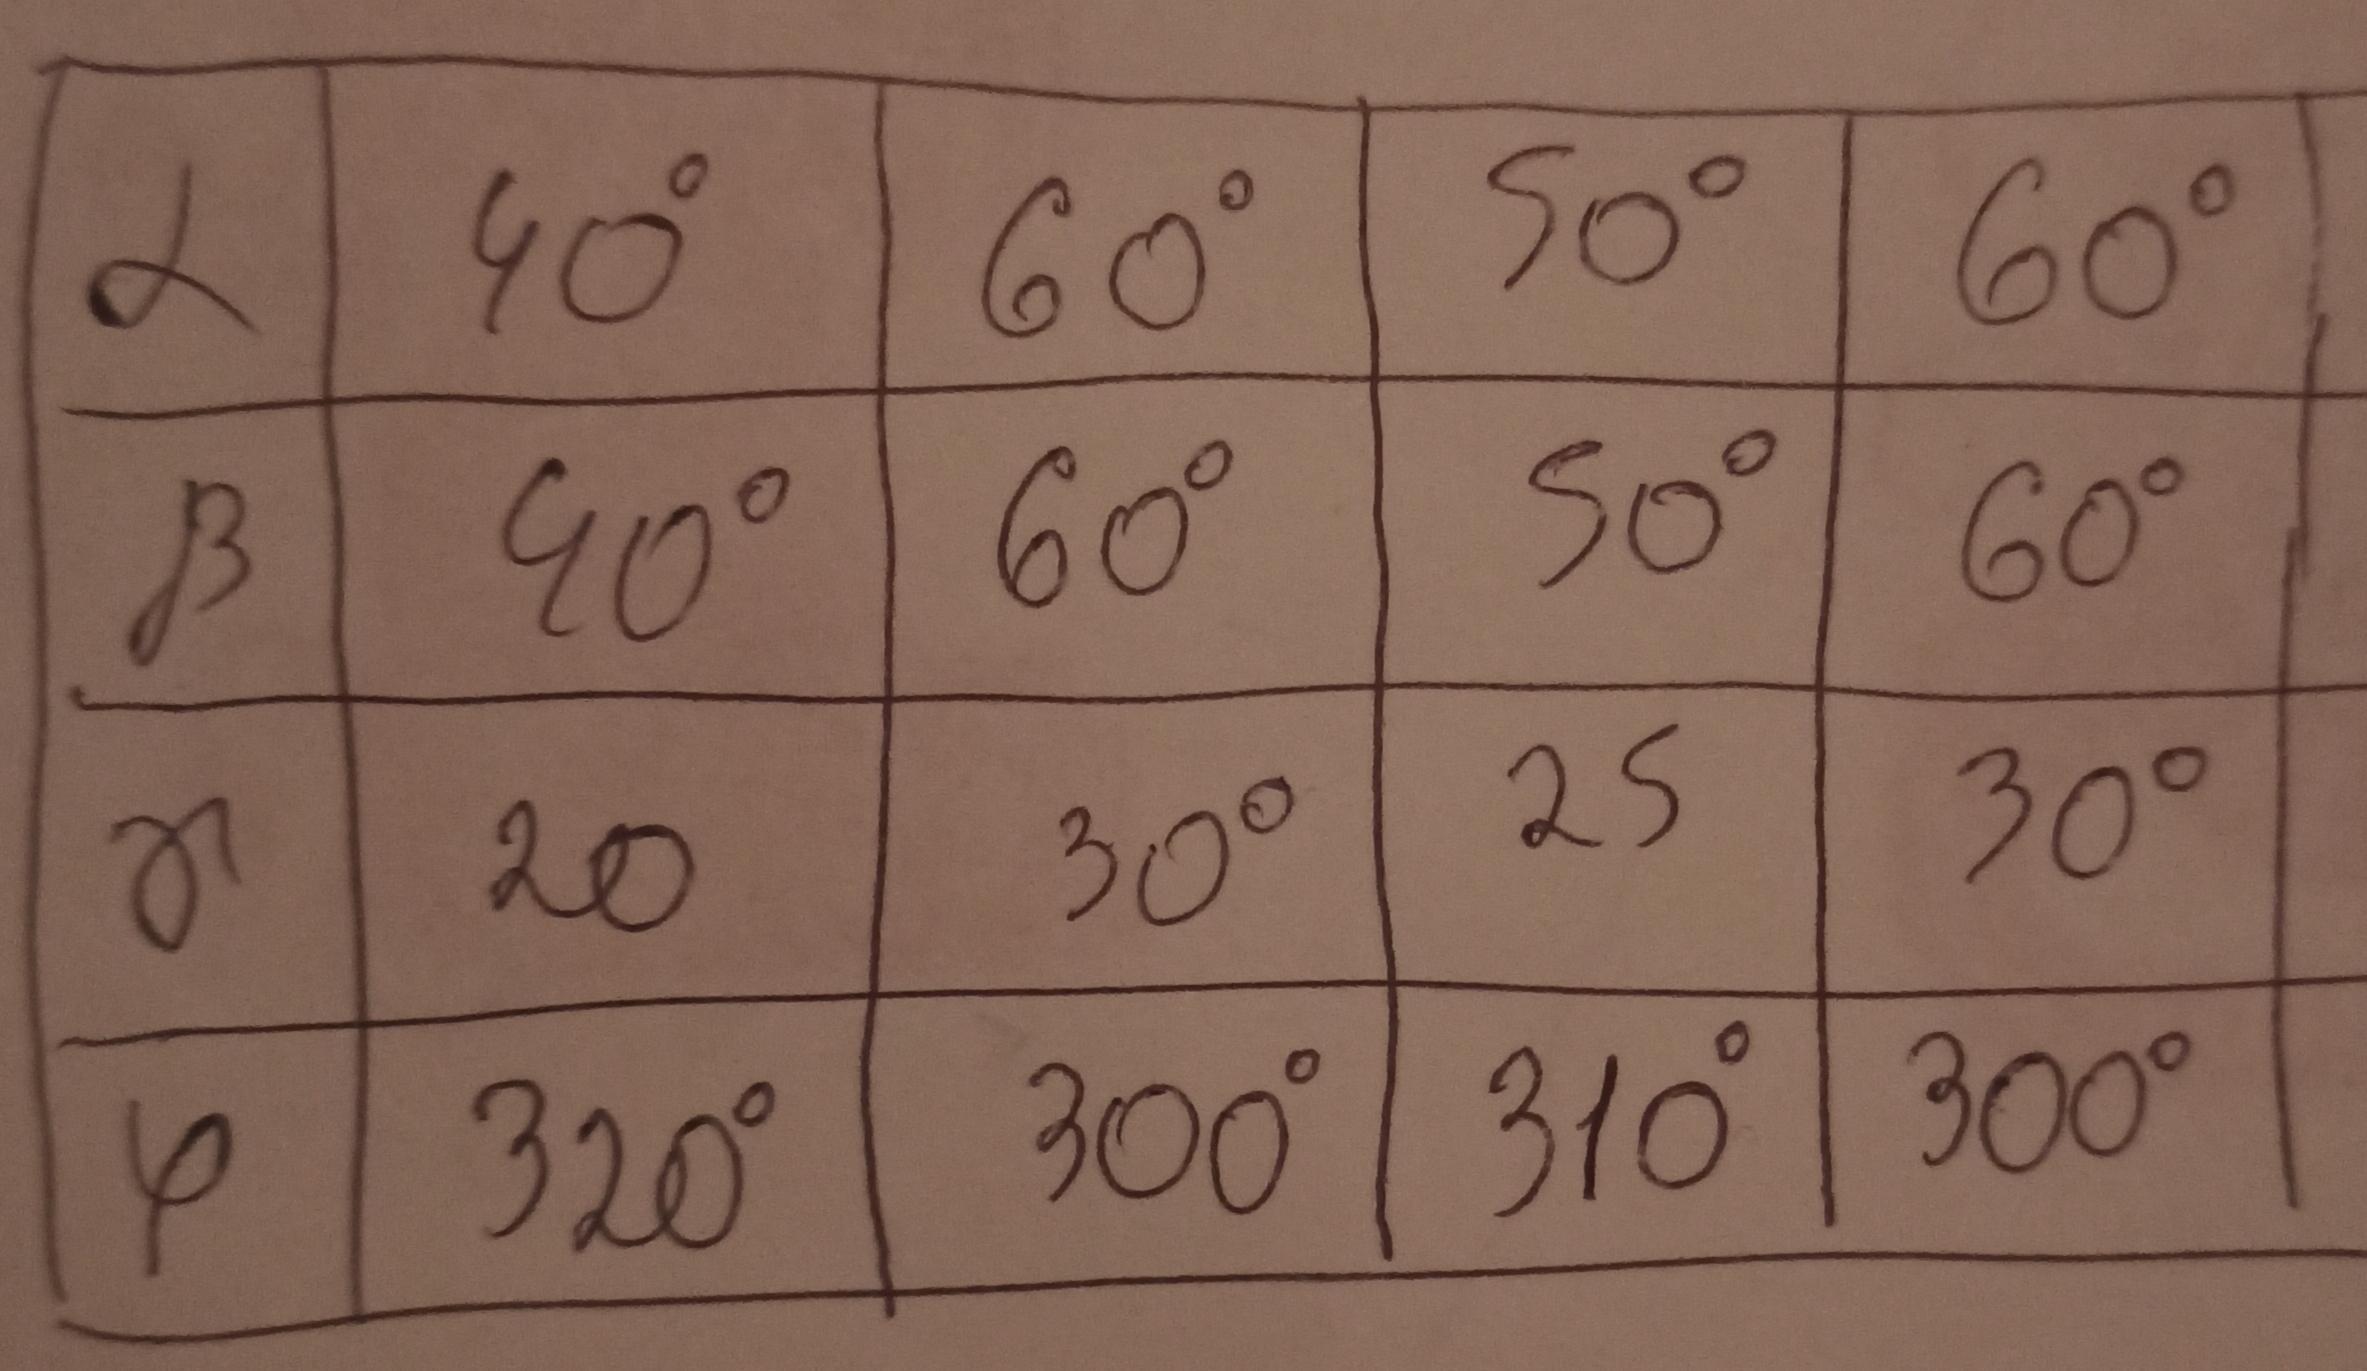 α 40° 60° 50° 60°
β 40° 60° 50° 60°
γ 20 30° 25 30°
φ 320° 300° 310° 300°